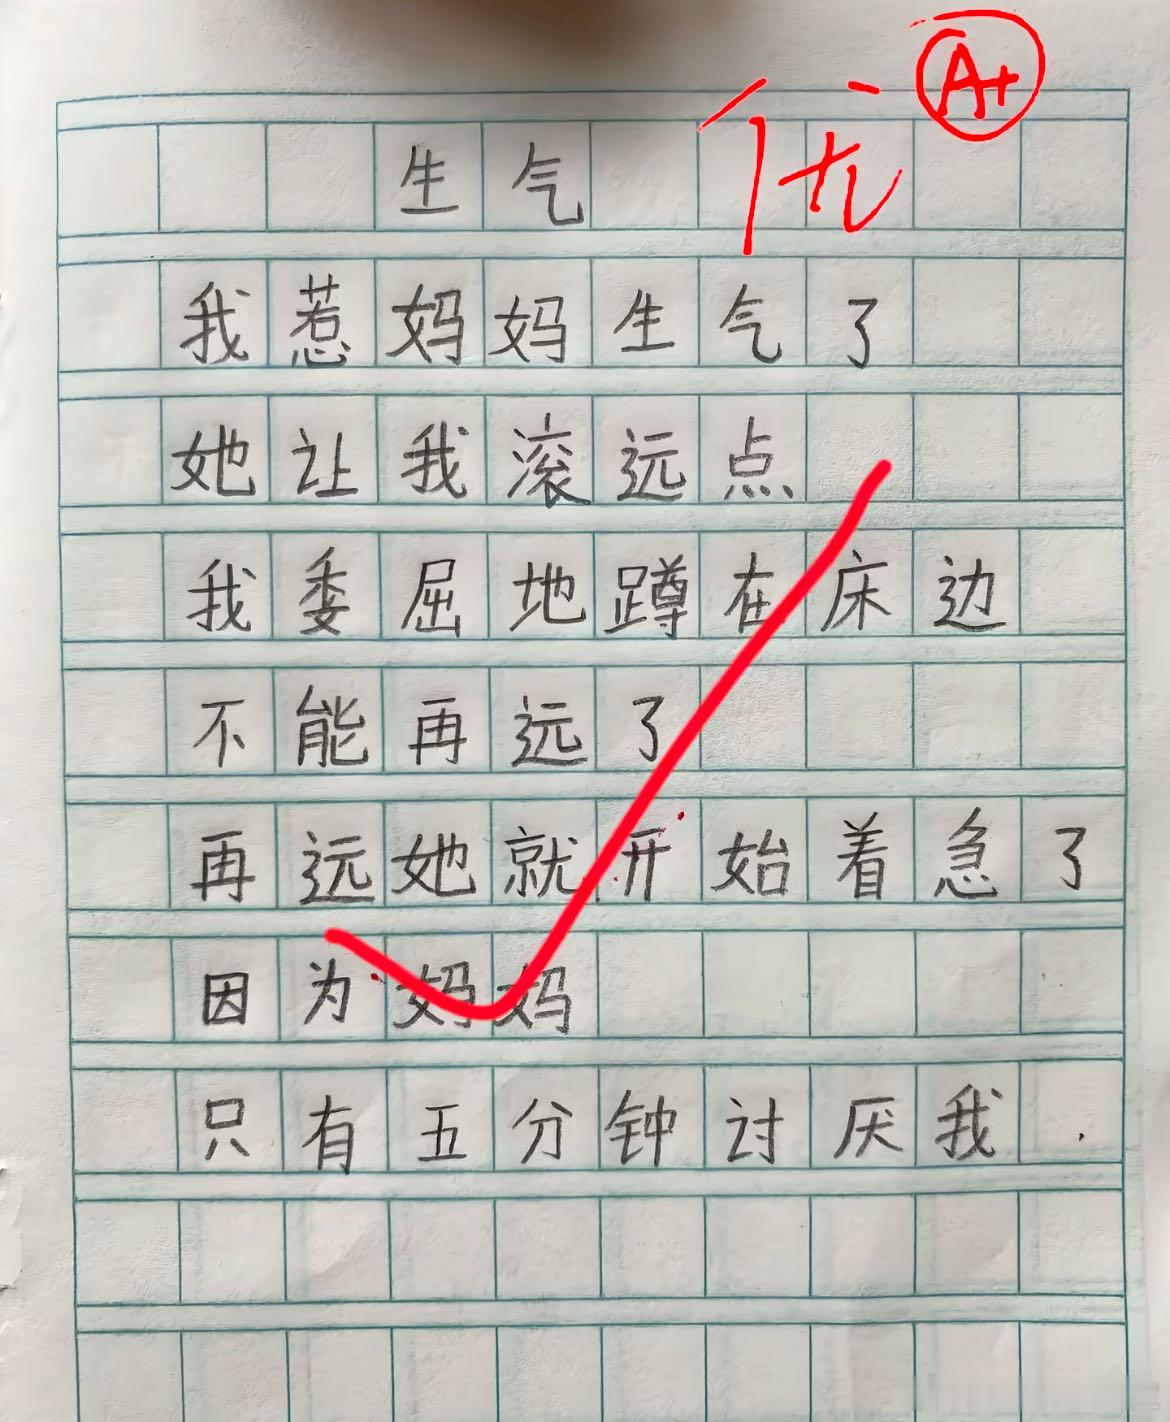 生气
优
A+
我惹妈妈生气了
她让我滚远点
我委屈地蹲在床边
不能再远了
再远她就开始着急了
因为妈妈
只有五分钟讨厌我